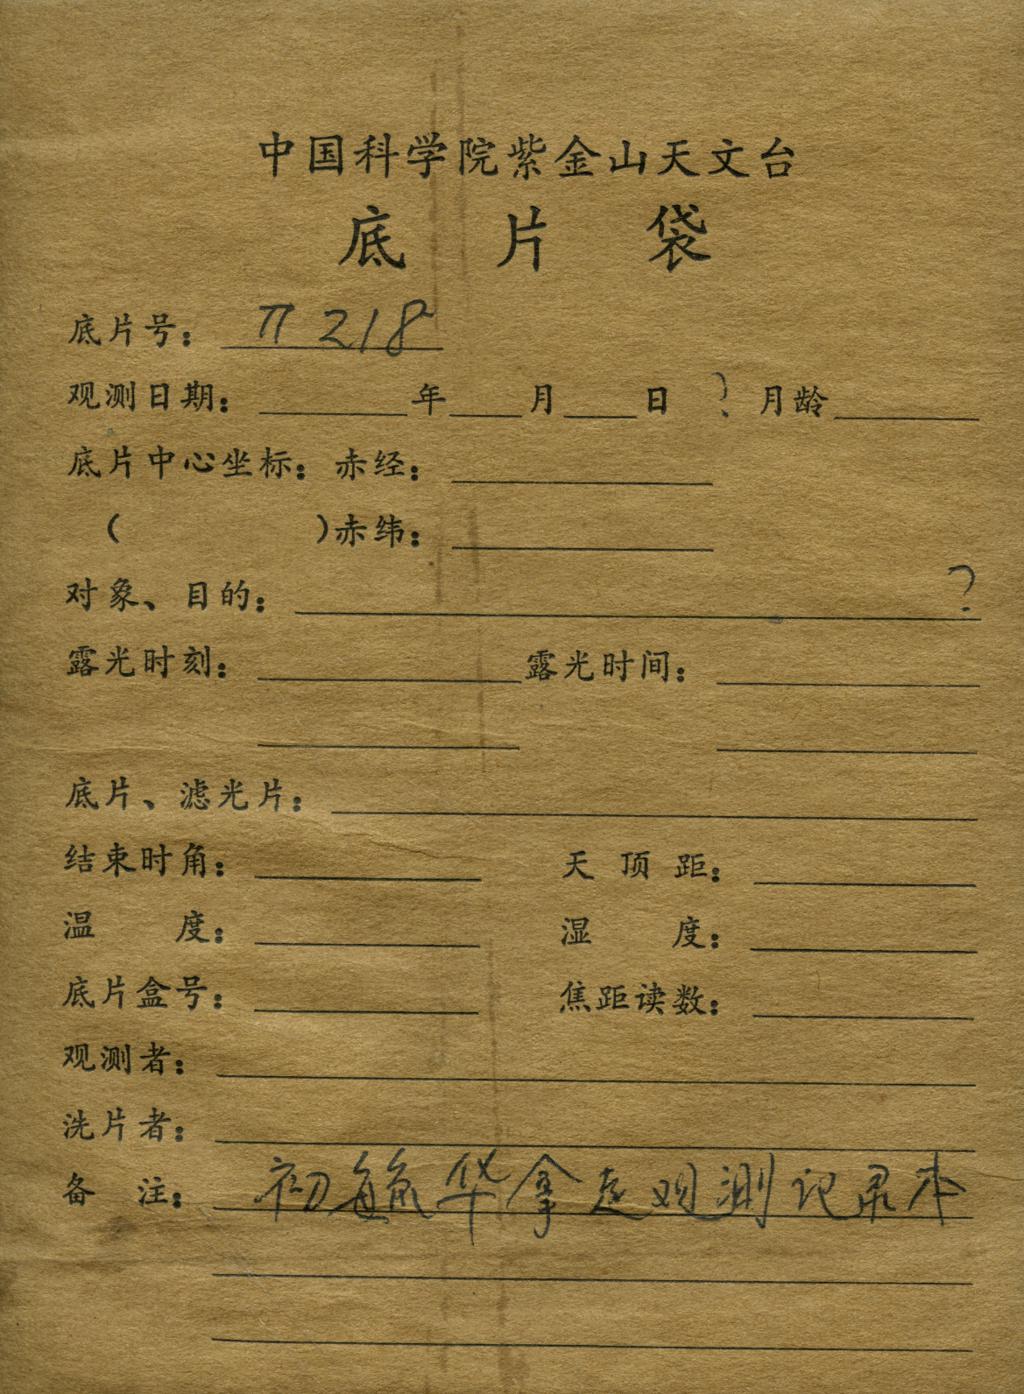 中国科学院紫金山天文台
底片袋
底片号： π 218
观测日期： 年 月 日 ? 月龄
底片中心坐标：赤经：
（ ）赤纬：
对象、目的： ?
露光时刻： 露光时间：
底片、滤光片：
结束时角： 天顶距：
温度： 湿度：
底片盒号： 焦距读数：
观测者：
洗片者：
备注： 初毓华拿走观测记录本